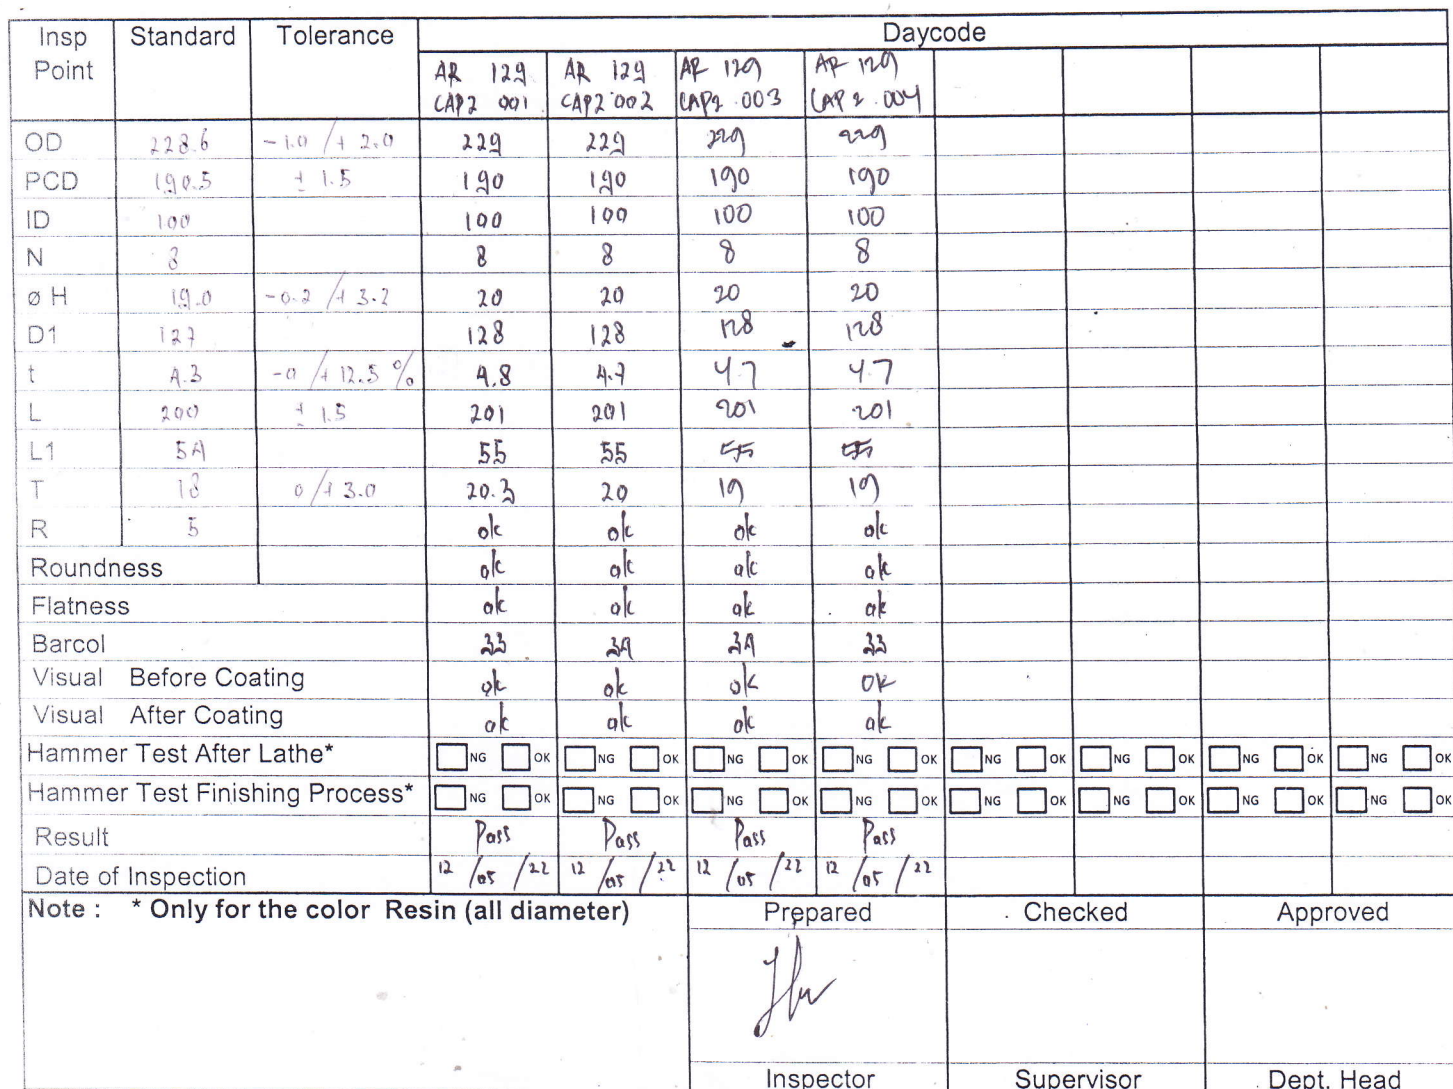 Insp Point Standard Tolerance Daycode
AR 129 CAP2 001 AR 129 CAP2 002 AR 129 CAP2 003 AR 129 CAP2 004
OD 228.6 -1.0 / + 2.0 229 229 229 229
PCD 190.5 ± 1.5 190 190 190 190
ID 100 100 100 100 100
N 8 8 8 8 8
ø H 19.0 -0.2 / + 3.2 20 20 20 20
D1 127 128 128 128 128
t 4.3 -0 / + 12.5 % 4.8 4.7 4.7 4.7
L 200 ± 1.5 201 201 201 201
L1 54 55 55 55 55
T 18 0 / + 3.0 20.3 20 19 19
R 5 ok ok ok ok
Roundness ok ok ok ok
Flatness ok ok ok ok
Barcol 33 34 34 33
Visual Before Coating ok ok ok OK
Visual After Coating ok ok ok ok
Hammer Test After Lathe* NG OK NG OK NG OK NG OK NG OK NG OK NG OK NG OK
Hammer Test Finishing Process* NG OK NG OK NG OK NG OK NG OK NG OK NG OK NG OK
Result Pass Pass Pass Pass
Date of Inspection 12 / 05 / 22 12 / 05 / 22 12 / 05 / 22 12 / 05 / 22
Note : * Only for the color Resin (all diameter) Prepared Checked Approved
Inspector Supervisor Dept. Head